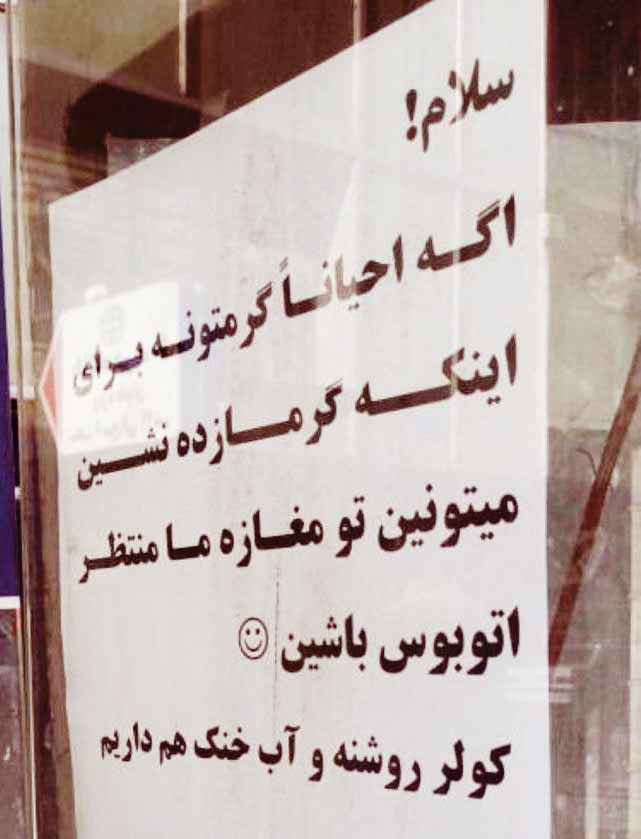 سلام!
اگه احیاناً گرمتونه برای
اینکه گرمازده نشین
میتونین تو مغازه ما منتظر
اتوبوس باشین ☺
کولر روشنه و آب خنک هم داریم